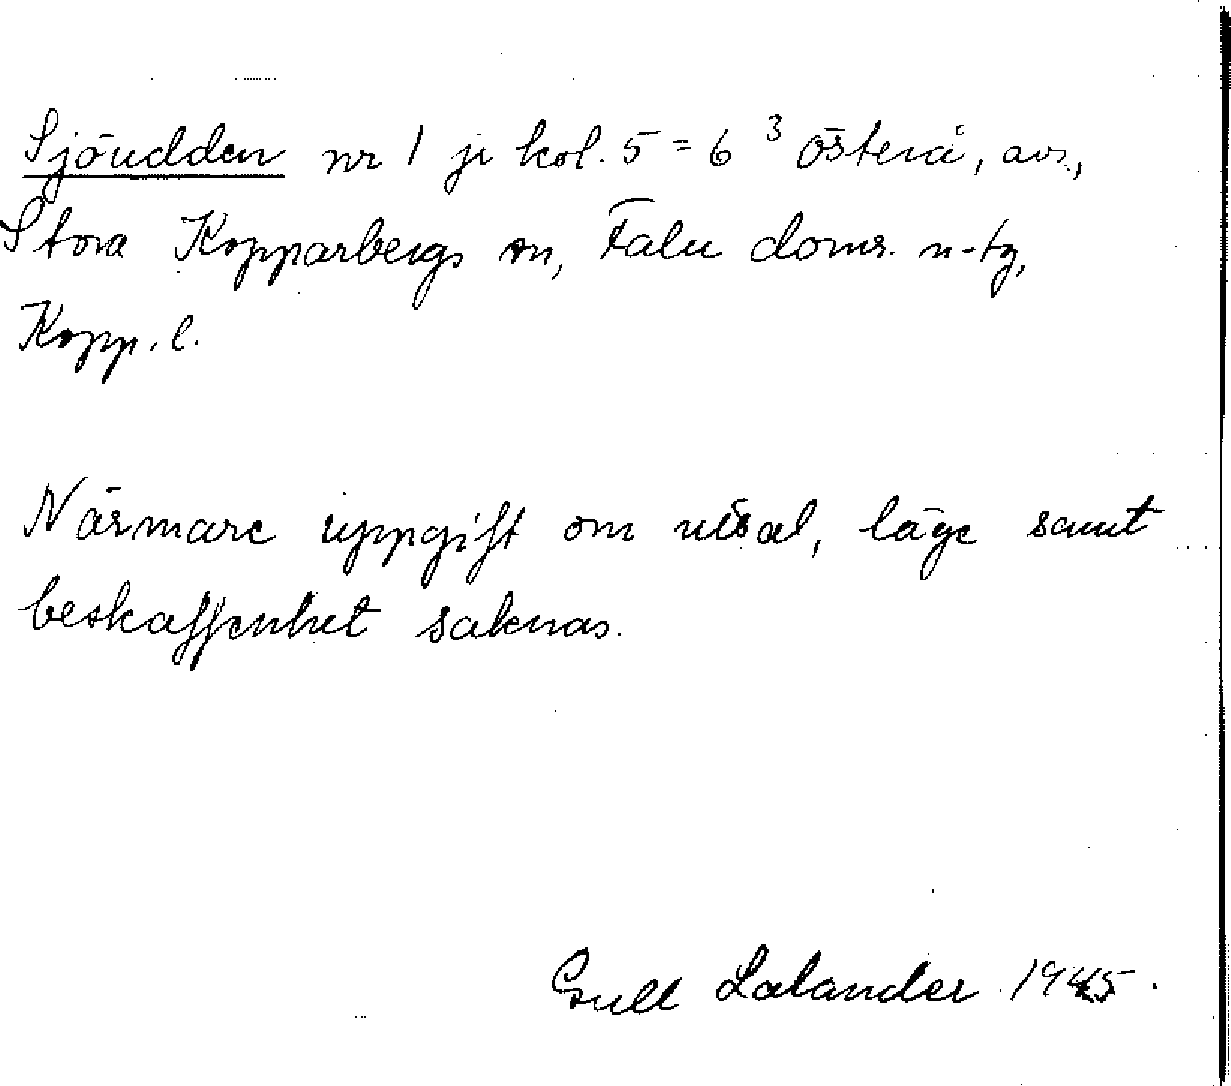 Sjöudden nr 1 jr kol. 5 = 6³ Österå, avs.,
Stora Kopparbergs sn, Falu doms. n-tg,
Kopp. l.
Närmare uppgift om uttal, läge samt
beskaffenhet saknas.
Gull Lalander 1945.